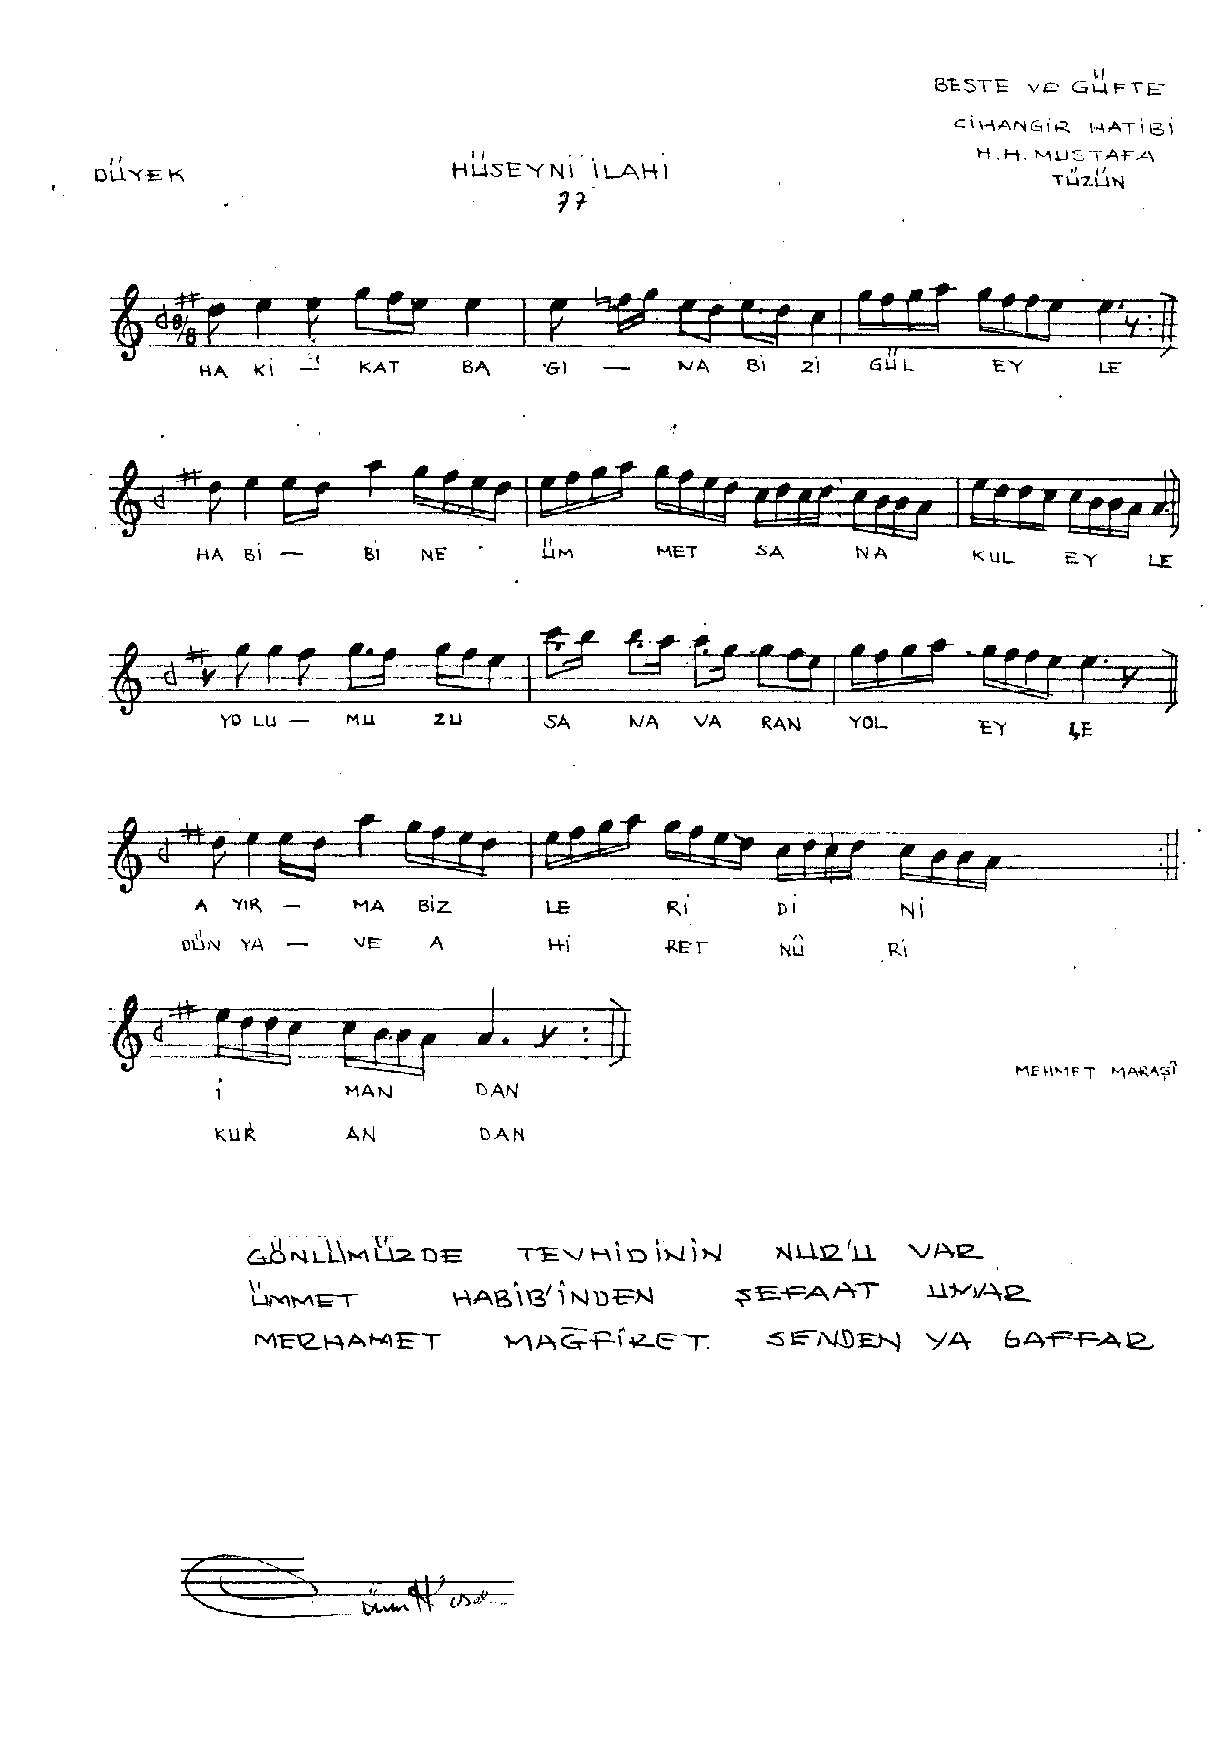 BESTE VE GÜFTE
CİHANGİR HATİBİ
H.H. MUSTAFA
TÜZÜN
DÜYEK
HÜSEYNİ İLAHİ
77
8/8
HA Kİ - KAT BA GI — NA Bİ Zİ GÜL EY LE
HA Bİ — Bİ NE ÜM MET SA NA KUL EY LE
YO LU — MU ZU SA NA VA RAN YOL EY LE
A YIR — MA BİZ LE Rİ Dİ Nİ
DÜN YA — VE A Hİ RET NÛ Rİ
İ MAN DAN
KUR AN DAN
MEHMET MARAŞÎ
GÖNLÜMÜZDE TEVHİDİNİN NUR'U VAR
ÜMMET HABİB'İNDEN ŞEFAAT UMAR
MERHAMET MAĞFİRET SENDEN YA GAFFAR